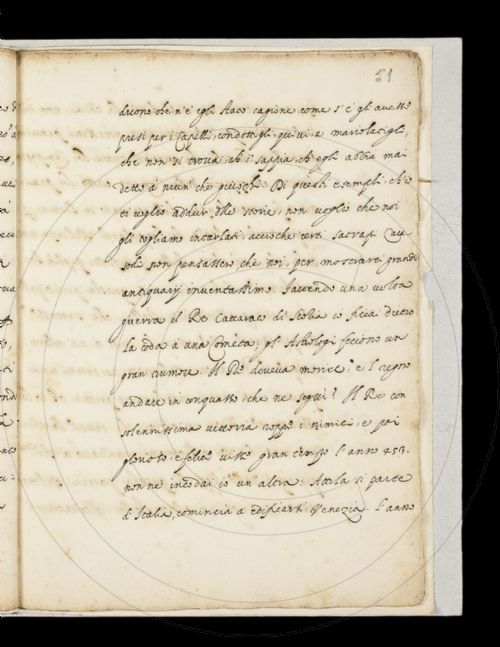 51
dicono che n'è egli stato cagione come s'e gl'havesse
presi per i Capelli, condottigli quivi, e
che non si trova, ch'i' sappia, ch'egli abbia mai
detto à neun' che giuochi. Di questi esempli, ch'io
ti voglio addur delle storie, non voglio che noi
gli togliamo intarlati, acciocche certi
non pensassero che noi, per mostrarci grandi
antiquarij inventassimo. Facendo una volta
guerra il Re di Scotia io ficca dietro
la coda à una Cometa; gl'Astrologi feciono un
gran rumore. Il Re doveva morire, e 'l regno
andare in conquasso, che ne seguì? Il Re con
solennissima vittoria roppe i nimici, e poi
glorioso, e felice visse gran tempo l'anno 453.
non ne incodai io un'altra: Attila si parte
d'Italia, comincia a edificarsi Venezia. L'anno